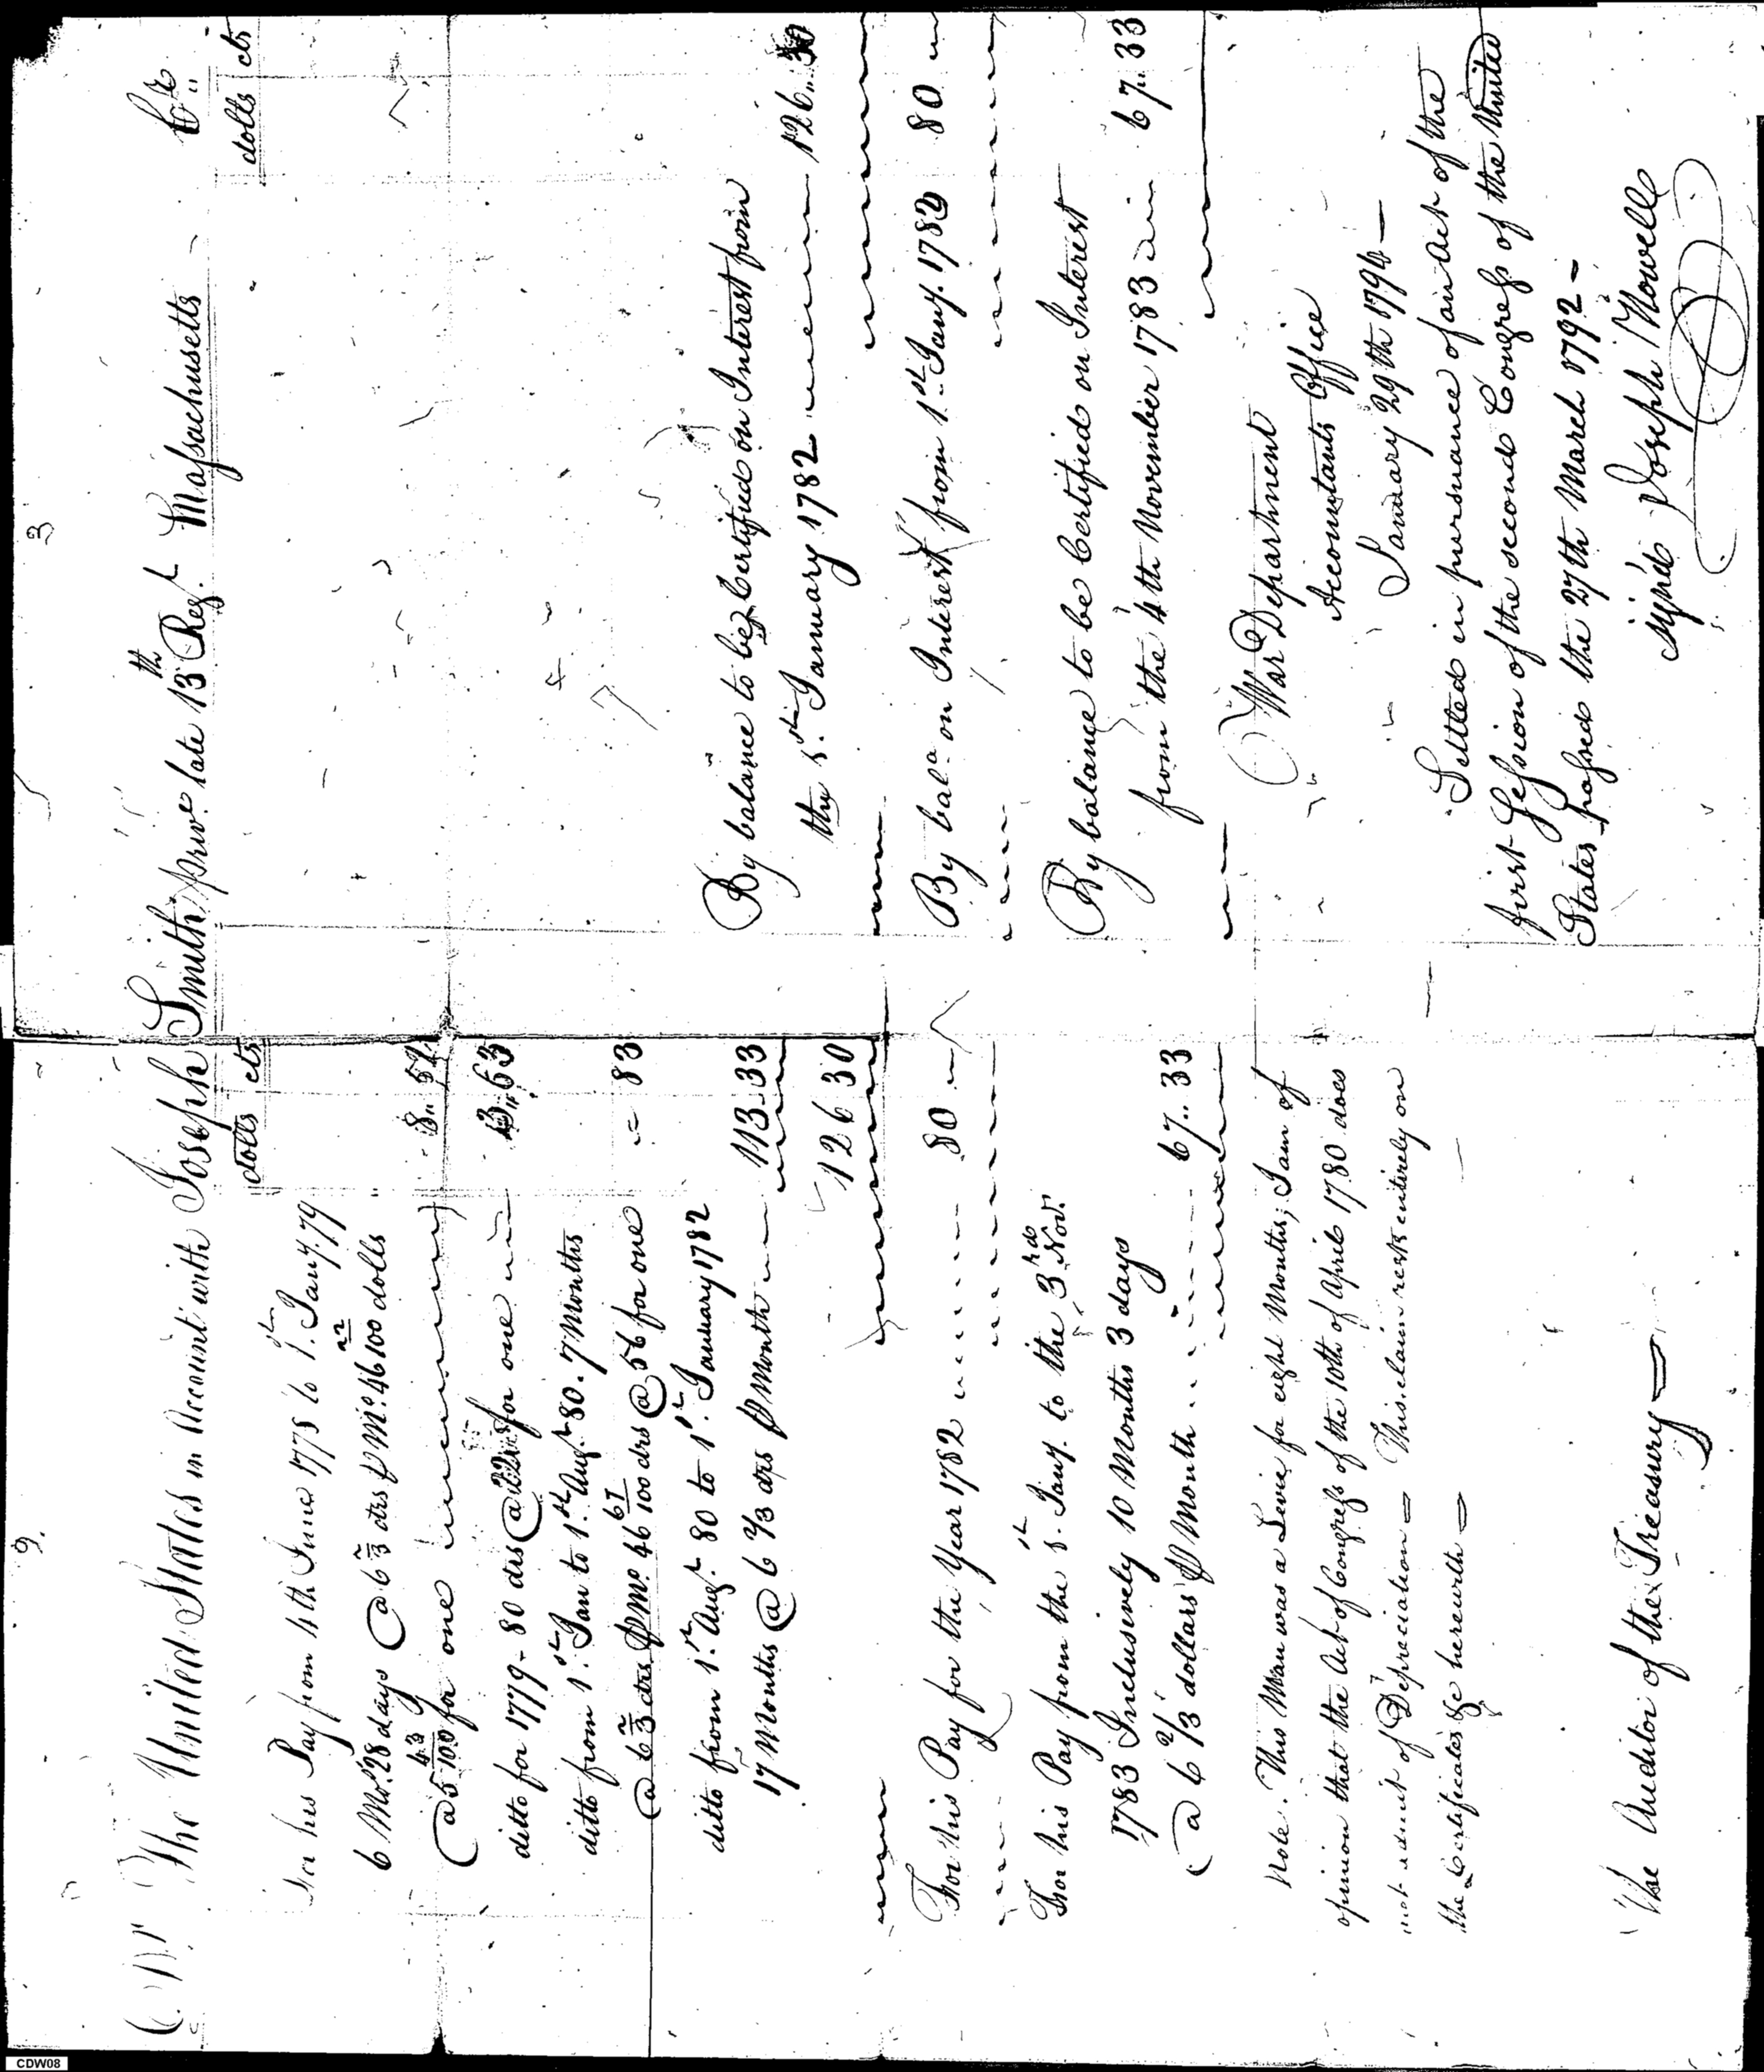 9.
3
Dr The United States in Account with Joseph Smith priv.e late 13th Reg.t Massachusetts Cr.
dolls cts
dolls cts
For his Pay from 4th June 1778 to 1.st Jany. 79
6 Mo.s 28 days @ 6 2/3 drs ⅌ Mo. 46 22/100 dolls
@ 5 43/100 for one 8..52
ditto for 1779 - 80 drs @ for one 3..63
ditto from 1.st Jan to 1.st Aug.t 80. 7 Months
@ 6 2/3 drs ⅌ Mo. 46 67/100 drs @ 56 for one = 83
ditto from 1.st Aug.t 80 to 1.st January 1782
17 Months @ 6 2/3 drs ⅌ Month 113-33
126 30
For his Pay for the Year 1782 80
For his Pay from the 1.st Jany. to the 3rd Nov.r
1783 Inclusively 10 Months 3 days
@ 6 2/3 dollars ⅌ Month 67..33
Note. This Man was a Levie for eight Months, I am of
opinion that the Act of Congress of the 10th of April 1780 does
not admit of Depreciation = This claim rests entirely on
the Certificates &c herewith =
The Auditor of the Treasury
By balance to be Certified on Interest from
the 1.st January 1782 126..30
By bal.a on Interest from 1.st Jany. 1783 80
By balance to be Certified on Interest
from the 4th November 1783 67..33
War Department
Accountants Office
January 29th 1794 —
Settled in pursuance of an Act of the
first Session of the second Congress of the United
States passed the 27th March 1792 -
signed Joseph Howell
CDW08